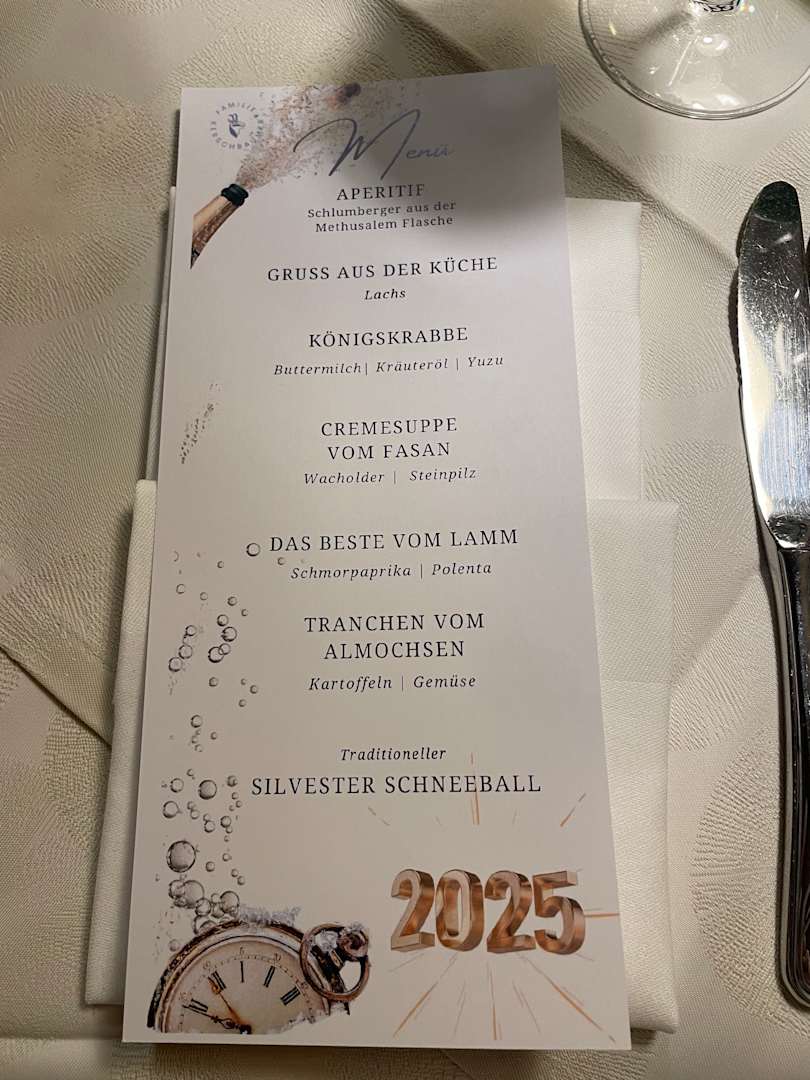 FAMILIE
Menü
APERITIF
Schlumberger aus der
Methusalem Flasche
GRUSS AUS DER KÜCHE
Lachs
KÖNIGSKRABBE
Buttermilch| Kräuteröl | Yuzu
CREMESUPPE
VOM FASAN
Wacholder | Steinpilz
DAS BESTE VOM LAMM
Schmorpaprika | Polenta
TRANCHEN VOM
ALMOCHSEN
Kartoffeln | Gemüse
Traditioneller
SILVESTER SCHNEEBALL
2025